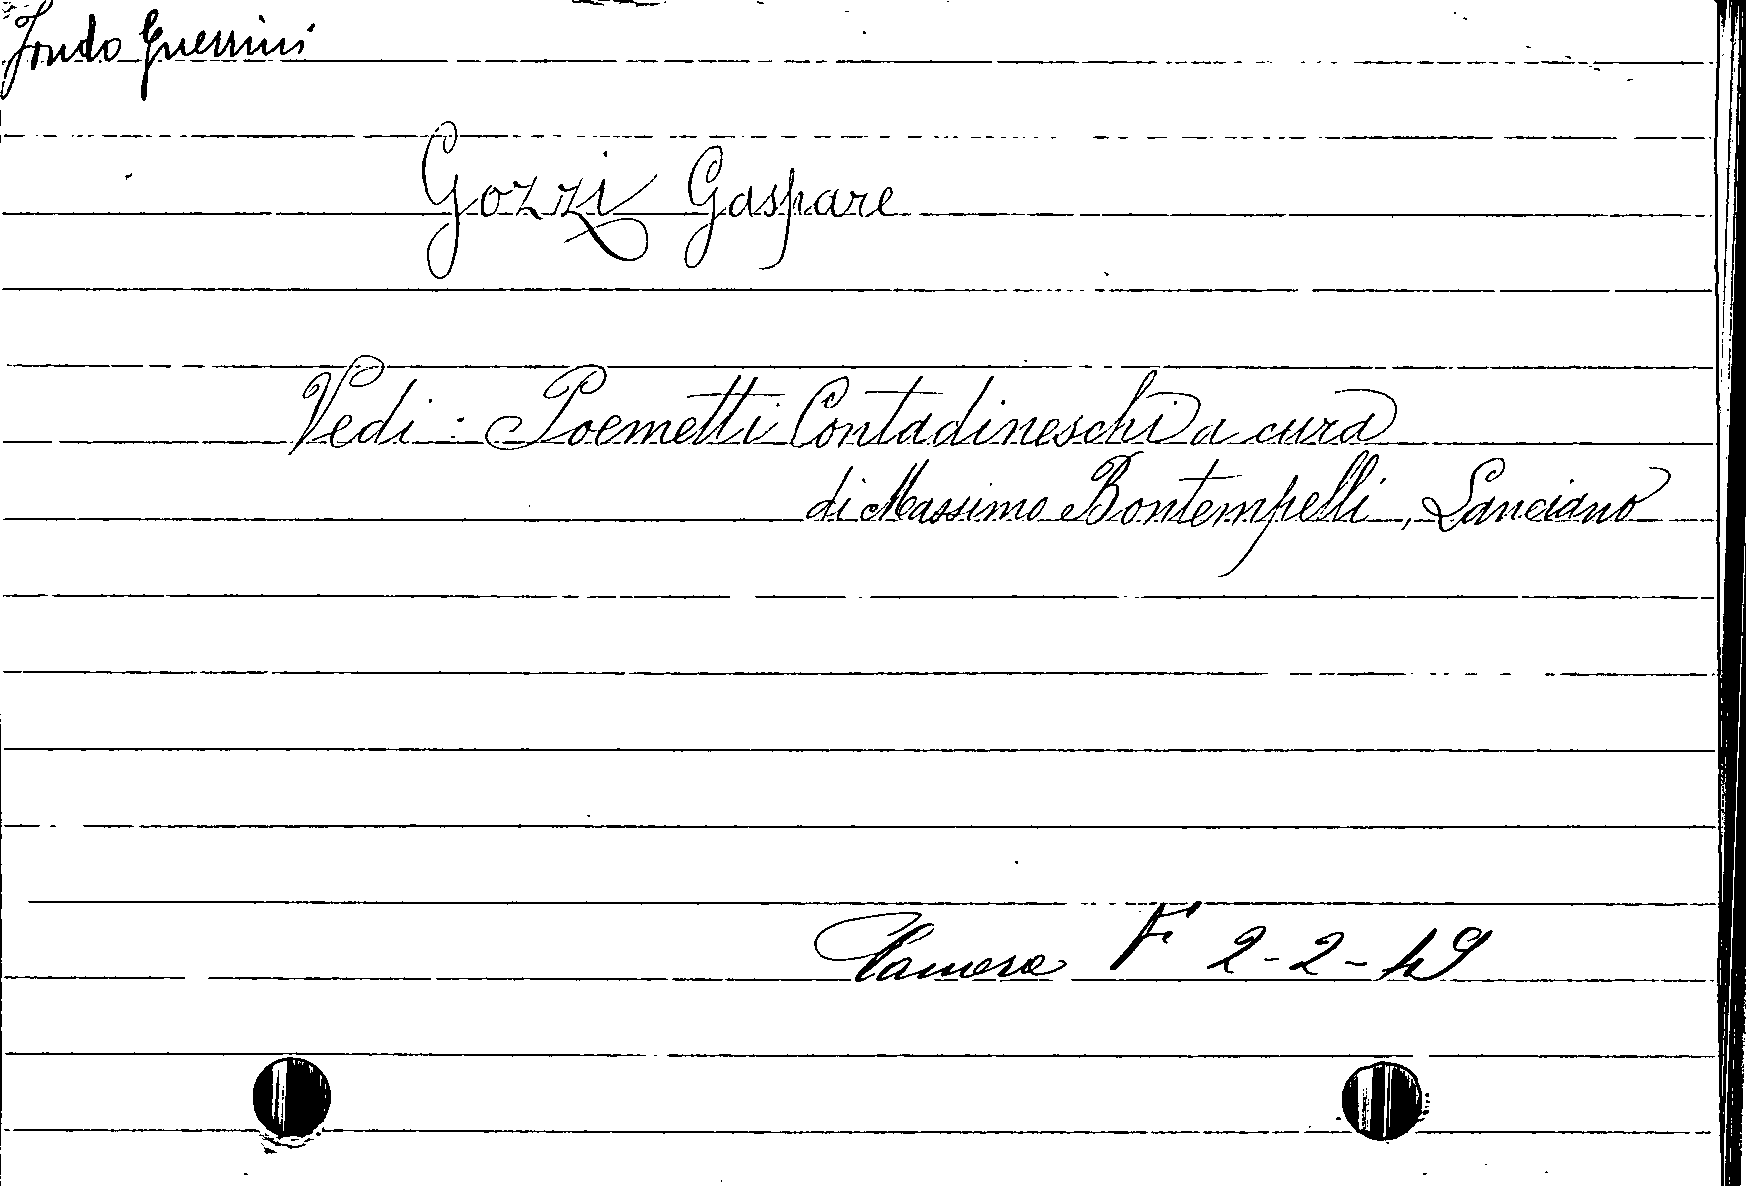 Fondo Guerrini
Gozzi Gaspare
Vedi : Poemetti Contadineschi a cura
di Massimo Bontempelli, Lanciano
Camera F 2-2-49